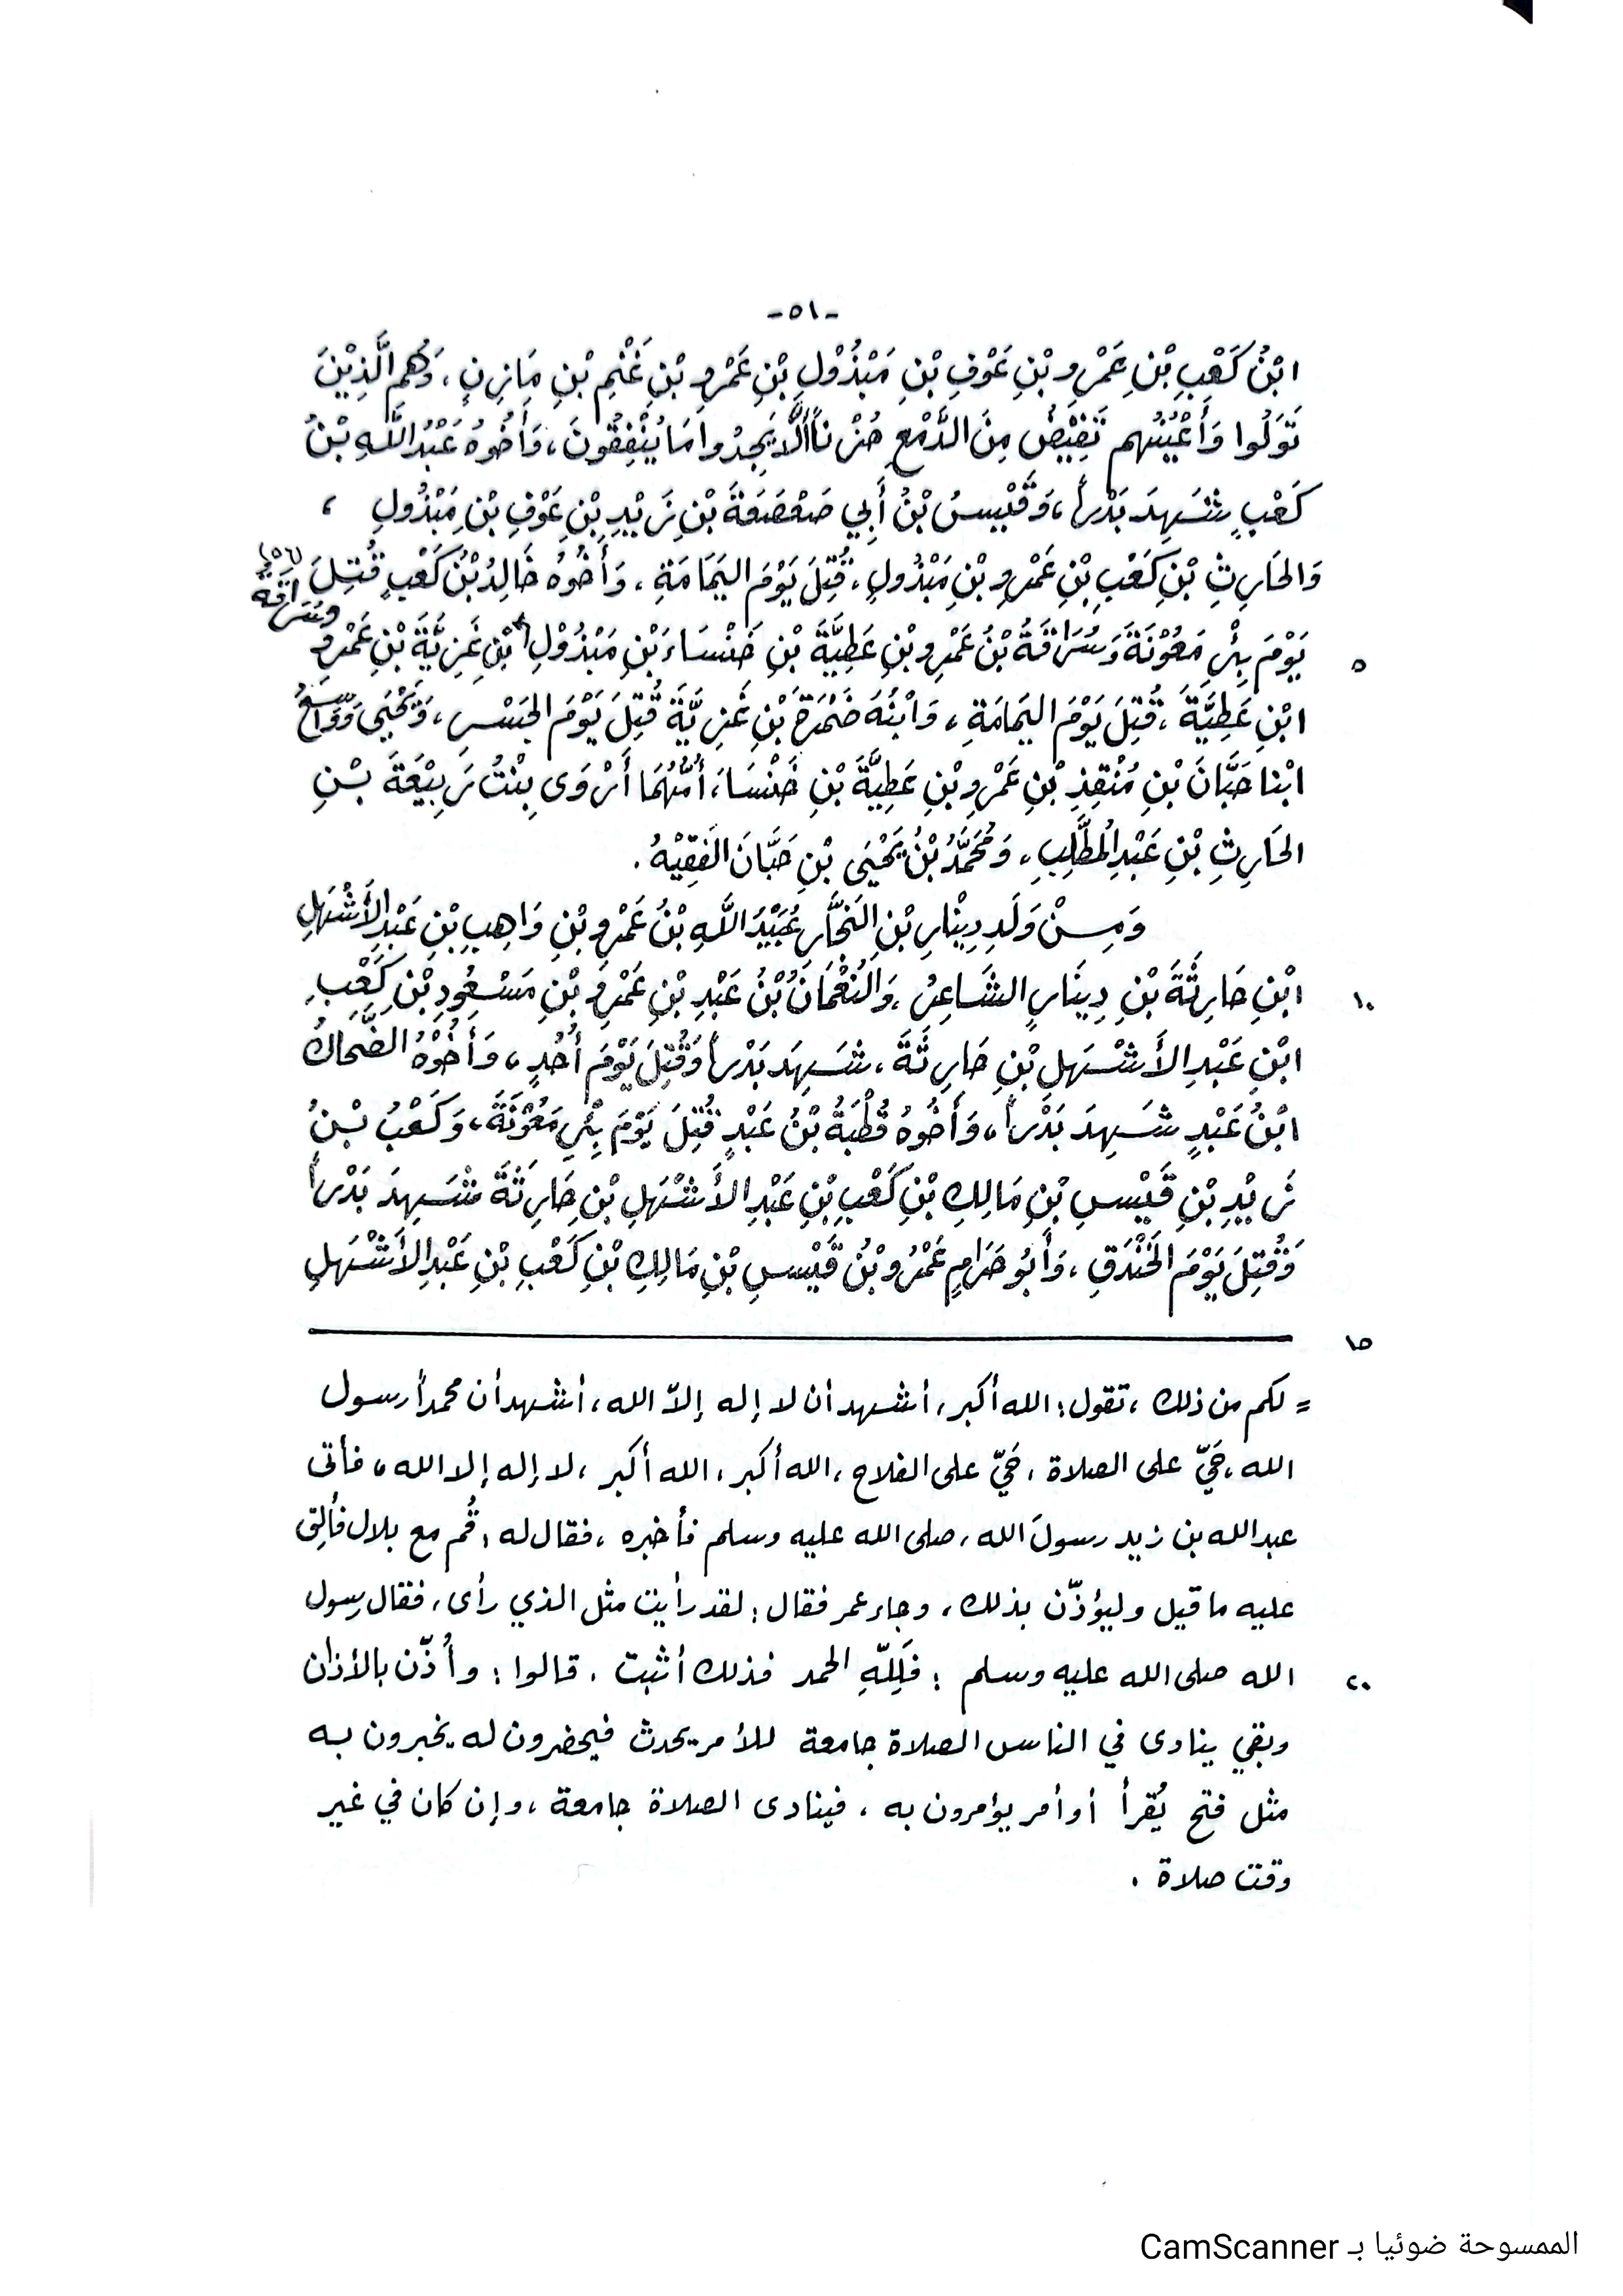 -٥١-
ابْنُ كَعْبِ بْنِ عَمْرِو بْنِ عَوْفِ بْنِ مَبْذُوْلِ بْنِ عَمْرِو بْنِ غَنْمِ بْنِ مَازِنٍ، وَهُم الَّذِيْنَ
تَوَلُوا وَأَعْيُنُهم تَفِيْضُ مِنَ الدَّمْعِ حُزْناً أَلَّا يَجِدُوا مَا يُنْفِقُونَ، وَأَخُوهُ عَبْدُ اللَّهِ بْنُ
كَعْبٍ شَهِدَ بَدْراً، وَقَيْسُ بْنُ أَبِي صَعْصَعَةَ بْنِ زَيْدِ بْنِ عَوْفِ بْنِ مَبْذُولِ ،
وَالحَارِثِ بْنِ كَعْبِ بْنِ عَمْرِو بْنِ مَبْذُولٍ، قُتِلَ يَوْمَ اليَمَامَةِ، وَأَخُوهُ خَالِدُ بْنُ كَعْبٍ قُتِلَ
(٥٦) وسُرَاقَةُ
٥ يَوْمَ بِئْرِ مَعُوْنَةَ وَسُرَاقَةُ بْنُ عَمْرِو بْنِ عَطِيَّةَ بْنِ خَنْسَاءَ بْنِ مَبْذُوْلِ* بْنِ غَزِيَّةَ بْنِ عَمْرِو
ابْنِ عَطِيَّةَ، قُتِلَ يَوْمَ اليَمَامَةِ، وَابْنُهُ ضَمْرَةُ بْنِ غَزِيَّةَ قُتِلَ يَوْمَ الجَسْرِ، وَيَحْيَى وَوَاسِعُ
ابْنا حَبَّانَ بْنِ مُنْقِذِ بْنِ عَمْرِو بْنِ عَطِيَّةَ بْنِ خَنْسَاءَ، أُمُّهُمَا أَرْوَى بِنْتُ رَبِيْعَةَ بْنِ
الحَارِثِ بْنِ عَبْدِ المُطَّلِبِ، وَمُحَمَّدُ بْنُ يَحْيَى بْنِ حَبَّانَ الفَقِيْهُ.
وَمِنْ وَلَدِ دِيْنْارِ بْنِ النَّجَّارِ عُبَيْدُ اللَّهِ بْنُ عَمْرِو بْنِ وَاهِبِ بْنِ عَبْدِ الأَشْهَلِ
١٠ ابْنِ حَارِثَةَ بْنِ دِينَارٍ الشَّاعِرُ، وَالنُّعْمَانُ بْنُ عَبْدِ بْنِ عَمْرِو بْنِ مَسْعُودِ بْنِ كَعْبِ
ابْنِ عَبْدِ الأَشْهَلِ بْنِ حَارِثَةَ، شَهِدَ بَدْراً وَقُتِلَ يَوْمَ أُحُدٍ، وَأَخُوْهُ الضَّحاكُ
ابْنُ عَبْدٍ شَهِدَ بَدْراً، وَأَخُوهُ قُطْبَةُ بْنُ عَبْدٍ قُتِلَ يَوْمَ بِئْرِ مَعُوْنَةَ، وَكَعْبُ بْنُ
زَيْدِ بْنِ قَيْسِ بْنِ مَالِكِ بْنِ كَعْبِ بْنِ عَبْدِ الأَشْهَلِ بْنِ حَارِثَةَ شَهِدَ بَدْراً
وَقُتِلَ يَوْمَ الخَنْدَقِ، وَأَبُو حَرَامٍ عَمْرُو بْنُ قَيْسِ بْنِ مَالِكِ بْنِ كَعْبِ بْنِ عَبْدِ الأَشْهَلِ
١٥
= لكم من ذلك ، تقول: الله أكبر، أشهد أن لا إله إلاّ الله، أشهد أن محمداً رسول
الله، حَيّ على الصلاة ، حَيّ على الفلاح ، الله أكبر، الله أكبر ، لا إله إلا الله، فأتى
عبدالله بن زيد رسولَ الله، صلى الله عليه وسلم فأخبره ، فقال له : قُم مع بلال فألقِ
عليه ما قيل وليؤذّن بذلك، وجاء عمر فقال: لقد رأيت مثل الذي رأى، فقال رسول
٢٠ الله صلى الله عليه وسلم : فَلِلّهِ الحمد فذلك أثبت . قالوا : وأُذّن بالأذان
وبقي ينادى في الناس الصلاة جامعة للأمر يحدث فيحضرون له يخبرون به
مثل فتح يُقرأ أو أمر يؤمرون به ، فينادى الصلاة جامعة ، وإن كان في غير
وقت صلاة .
الممسوحة ضوئيا بـ CamScanner